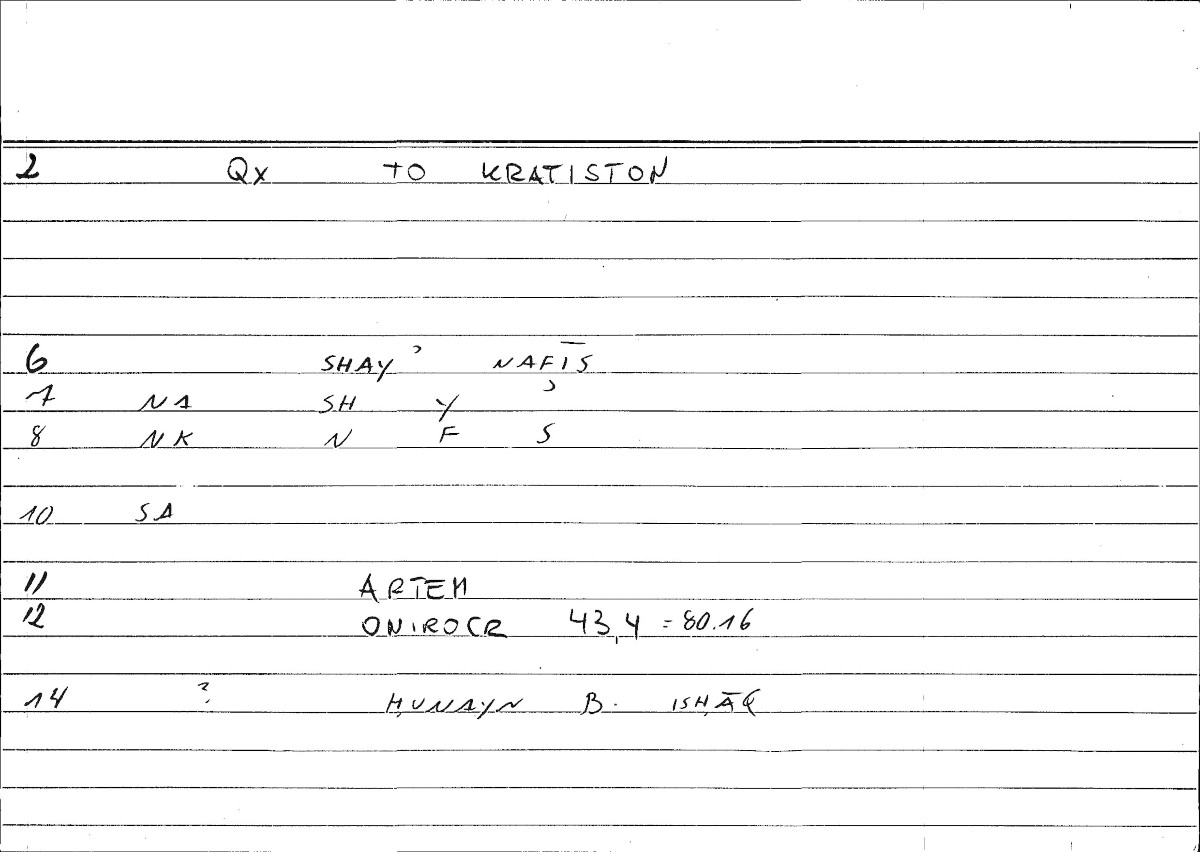 2 Qx TO KRATISTON
6 SHAYʾ NAFĪS
7 NA SH Y ʾ
8 NK N F S
10 SA
11 ARTEM
12 ONIROCR 43,4 = 80.16
14 ? ḤUNAYN B. ISḤĀQ